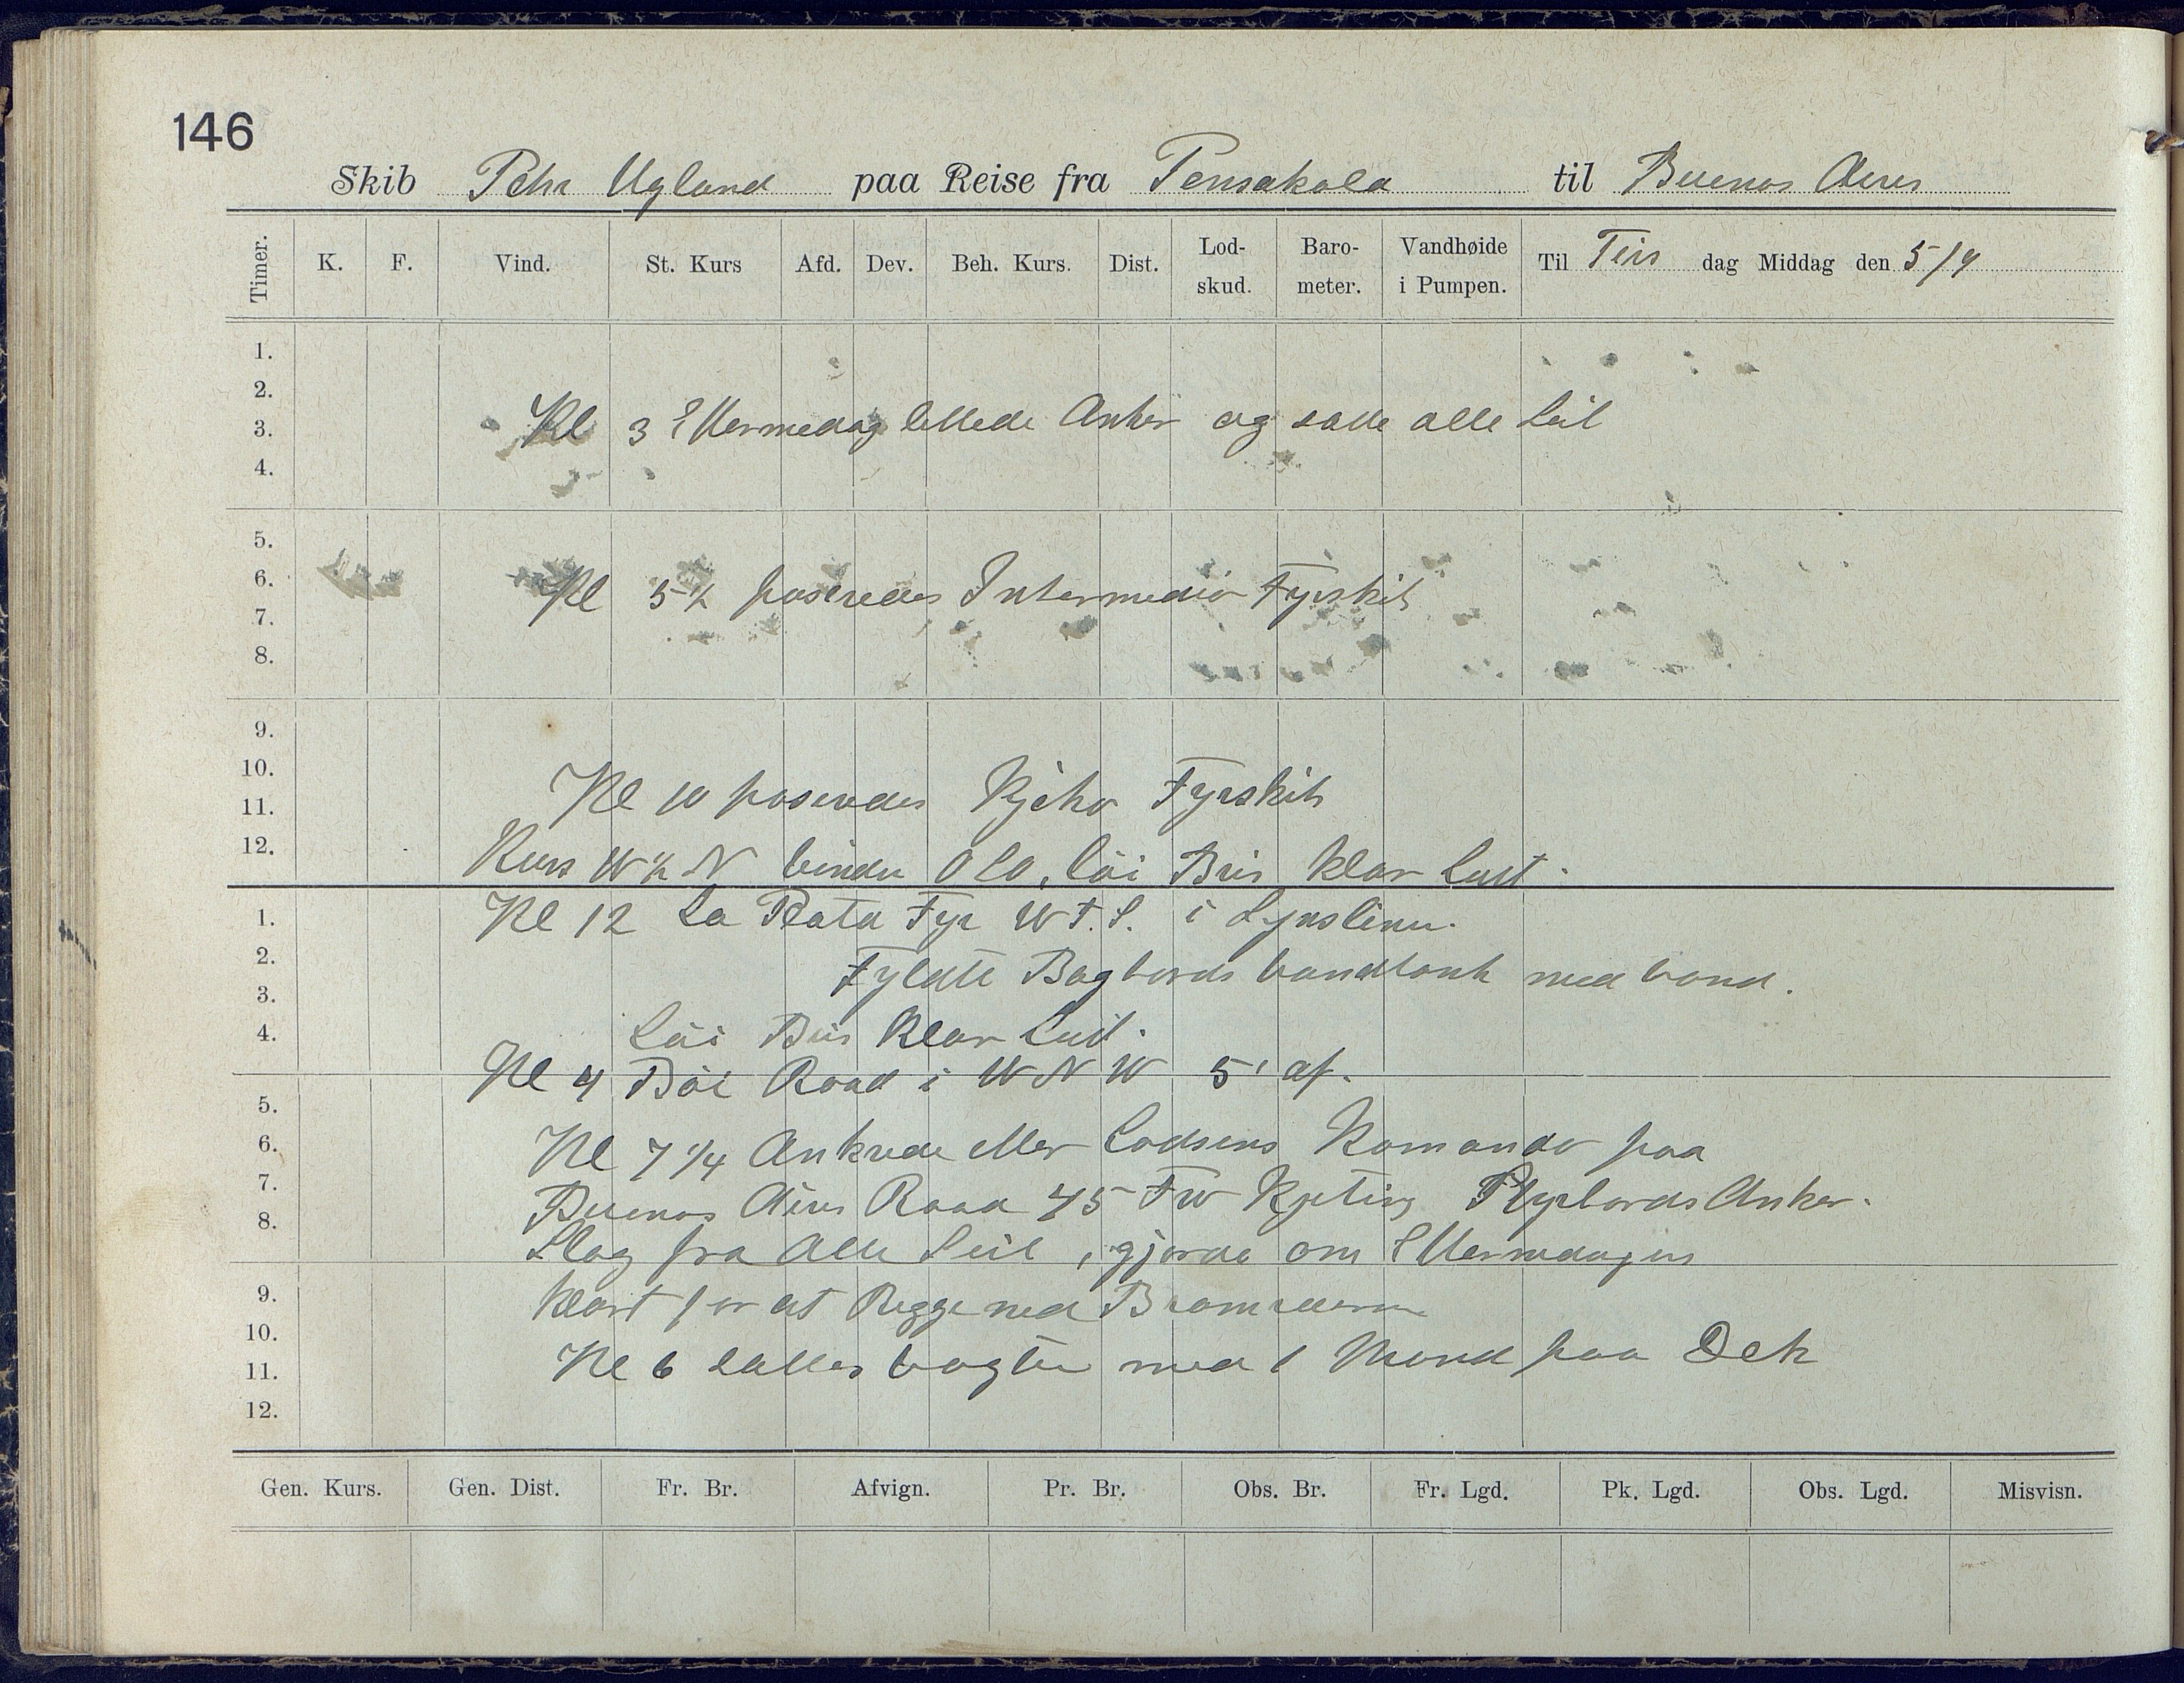 146
Skib Peter Ugland paa Reise fra Pensakola til Buenos Aires
Timer. K. F. Vind. St. Kurs Afd. Dev. Beh. Kurs. Dist. Lod-skud. Baro-meter. Vandhøide i Pumpen. Til Tirs dag Middag den 5/9
1.
2.
3. Kl 3 Ettermedag lettede Anker og satte alle Seil
4.
5.
6. Kl 5½ passeredes Intermedio Fyrskib
7.
8.
9.
10. Kl 10 paseredes Fyrskib
11.
12. Kurs W½N vinden OSO, løi Bris klar Luft.
1. Kl 12 La Plata Fyr i Synslinie.
2. Fyldte Bagbords vandtank med vand.
3.
4. Løi Bris klar Luft.
Kl 4 Böi Road i WNW 5' af.
5.
6. Kl 7¼ Ankrede etter Lodsens Komando paa
7. Buenos Aires Road 45 Fv Kjetting Styrbords Anker.
8. Slog fra Alle Seil, gjorde om Ettermedagen
9. klart for at Rigge ned Bramræerne
10.
11. Kl 6 sattes vagten med 1 Mand paa Dek
12.
Gen. Kurs. Gen. Dist. Fr. Br. Afvign. Pr. Br. Obs. Br. Fr. Lgd. Pk. Lgd. Obs. Lgd. Misvisn.